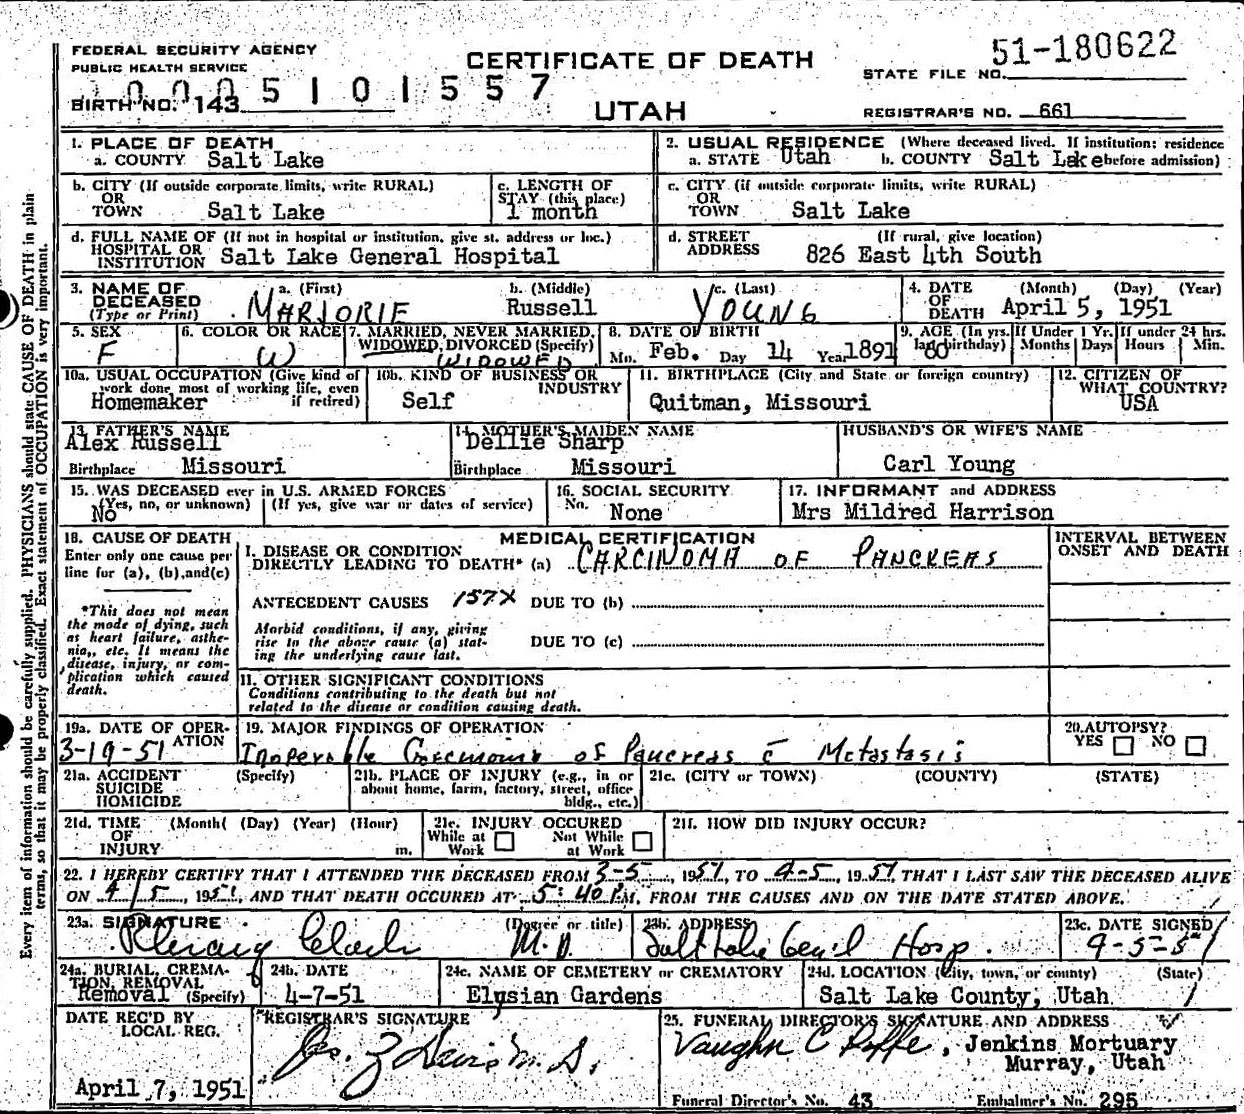 FEDERAL SECURITY AGENCY
PUBLIC HEALTH SERVICE
CERTIFICATE OF DEATH
UTAH
51-180622
STATE FILE NO.
0005101557
BIRTH NO. 143
REGISTRAR'S NO. 661
1. PLACE OF DEATH
a. COUNTY Salt Lake
2. USUAL RESIDENCE (Where deceased lived. If institution; residence
a. STATE Utah b. COUNTY Salt Lake before admission)
b. CITY (If outside corporate limits, write RURAL)
OR
TOWN Salt Lake
c. LENGTH OF
STAY (this place)
1 month
c. CITY (if outside corporate limits, write RURAL)
OR
TOWN Salt Lake
d. FULL NAME OF (If not in hospital or institution, give st. address or loc.)
HOSPITAL OR
INSTITUTION Salt Lake General Hospital
d. STREET (If rural, give location)
ADDRESS 826 East 4th South
3. NAME OF DECEASED
(Type or Print)
a. (First) MARJORIE
b. (Middle) Russell
c. (Last) YOUNG
4. DATE OF DEATH (Month) (Day) (Year)
April 5, 1951
5. SEX
F
6. COLOR OR RACE
W
7. MARRIED, NEVER MARRIED,
WIDOWED, DIVORCED (Specify)
WIDOWED
8. DATE OF BIRTH
Mo. Feb. Day 14 Year 1891
9. AGE (In yrs. last birthday)
60
If Under 1 Yr.
Months Days
If under 24 hrs.
Hours Min.
10a. USUAL OCCUPATION (Give kind of
work done most of working life, even
if retired)
Homemaker
10b. KIND OF BUSINESS OR
INDUSTRY
Self
11. BIRTHPLACE (City and State or foreign country)
Quitman, Missouri
12. CITIZEN OF
WHAT COUNTRY?
USA
13. FATHER'S NAME
Alex Russell
Birthplace Missouri
14. MOTHER'S MAIDEN NAME
Dellie Sharp
Birthplace Missouri
HUSBAND'S OR WIFE'S NAME
Carl Young
15. WAS DECEASED ever in U.S. ARMED FORCES
(Yes, no, or unknown) (If yes, give war or dates of service)
No
16. SOCIAL SECURITY
No. None
17. INFORMANT and ADDRESS
Mrs Mildred Harrison
18. CAUSE OF DEATH
Enter only one cause per
line for (a), (b), and (c)
*This does not mean
the mode of dying, such
as heart failure, asthe-
nia, etc. It means the
disease, injury, or com-
plication which caused
death.
MEDICAL CERTIFICATION
I. DISEASE OR CONDITION
DIRECTLY LEADING TO DEATH* (a) CARCINOMA OF PANCREAS
ANTECEDENT CAUSES 157X DUE TO (b)
Morbid conditions, if any, giving
rise to the above cause (a) stat-
ing the underlying cause last.
DUE TO (c)
11. OTHER SIGNIFICANT CONDITIONS
Conditions contributing to the death but not
related to the disease or condition causing death.
INTERVAL BETWEEN
ONSET AND DEATH
19a. DATE OF OPER-
ATION
3-19-51
19. MAJOR FINDINGS OF OPERATION
Inoperable Carcinoma of Pancreas c̄ Metastasis
20. AUTOPSY?
YES NO
21a. ACCIDENT (Specify)
SUICIDE
HOMICIDE
21b. PLACE OF INJURY (e.g., in or
about home, farm, factory, street, office
bldg., etc.)
21c. (CITY or TOWN) (COUNTY) (STATE)
21d. TIME (Month( (Day) (Year) (Hour)
OF
INJURY m.
21e. INJURY OCCURED
While at Work Not While at Work
21f. HOW DID INJURY OCCUR?
22. I HEREBY CERTIFY THAT I ATTENDED THE DECEASED FROM 3-5, 1951, TO 4-5, 1951 THAT I LAST SAW THE DECEASED ALIVE
ON 4/5, 1951, AND THAT DEATH OCCURED AT 5:40 P.M, FROM THE CAUSES AND ON THE DATE STATED ABOVE.
23a. SIGNATURE (Degree or title)
M.D.
23b. ADDRESS
Salt Lake Gen'l Hosp.
23c. DATE SIGNED
4-5-51
24a. BURIAL, CREMA-
TION, REMOVAL
Removal (Specify)
24b. DATE
4-7-51
24c. NAME OF CEMETERY or CREMATORY
Elysian Gardens
24d. LOCATION (City, town, or county) (State)
Salt Lake County, Utah
DATE REC'D BY
LOCAL REG.
April 7, 1951
REGISTRAR'S SIGNATURE
25. FUNERAL DIRECTOR'S SIGNATURE AND ADDRESS
Vaughn C, Jenkins Mortuary
Murray, Utah
Funeral Director's No. 43 Embalmer's No. 295
Every item of information should be carefully supplied. PHYSICIANS should state CAUSE OF DEATH in plain
terms, so that it may be properly classified. Exact statement of OCCUPATION is very important.